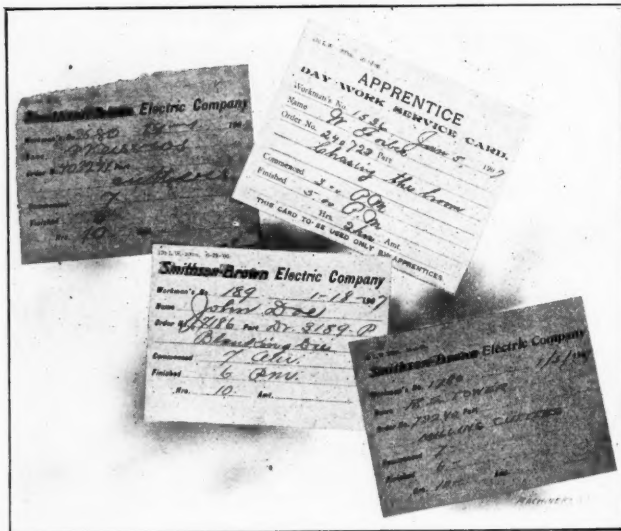 Electric Company
Workman's No. 2680 190
Name
Order No. Part
Cutters
Commenced 7
Finished 6
Hrs. 10
APPRENTICE
DAY WORK SERVICE CARD.
Workman's No. 1536 Jan 5, 1907
Name W.
Order No. 290728 Part
Chasing the broom
Commenced 3.00 P.M.
Finished 5.00 P.M.
Hrs. 2 Amt.
THIS CARD TO BE USED ONLY BY APPRENTICES.
Smithson-Brown Electric Company
Workman's No. 189 1-18-1907
Name John Doe
Order No. Part Dr. 3189-P
Blanking Die
Commenced 7 A.M.
Finished 6 P.M.
Hrs. 10 Amt.
Smithson-Brown Electric Company
Workman's No. 1280 190
Name TOWER
Order No. Part
MILLING CUTTERS
Commenced 7
Finished 6
Hrs. 10 Amt.
MACHINERY